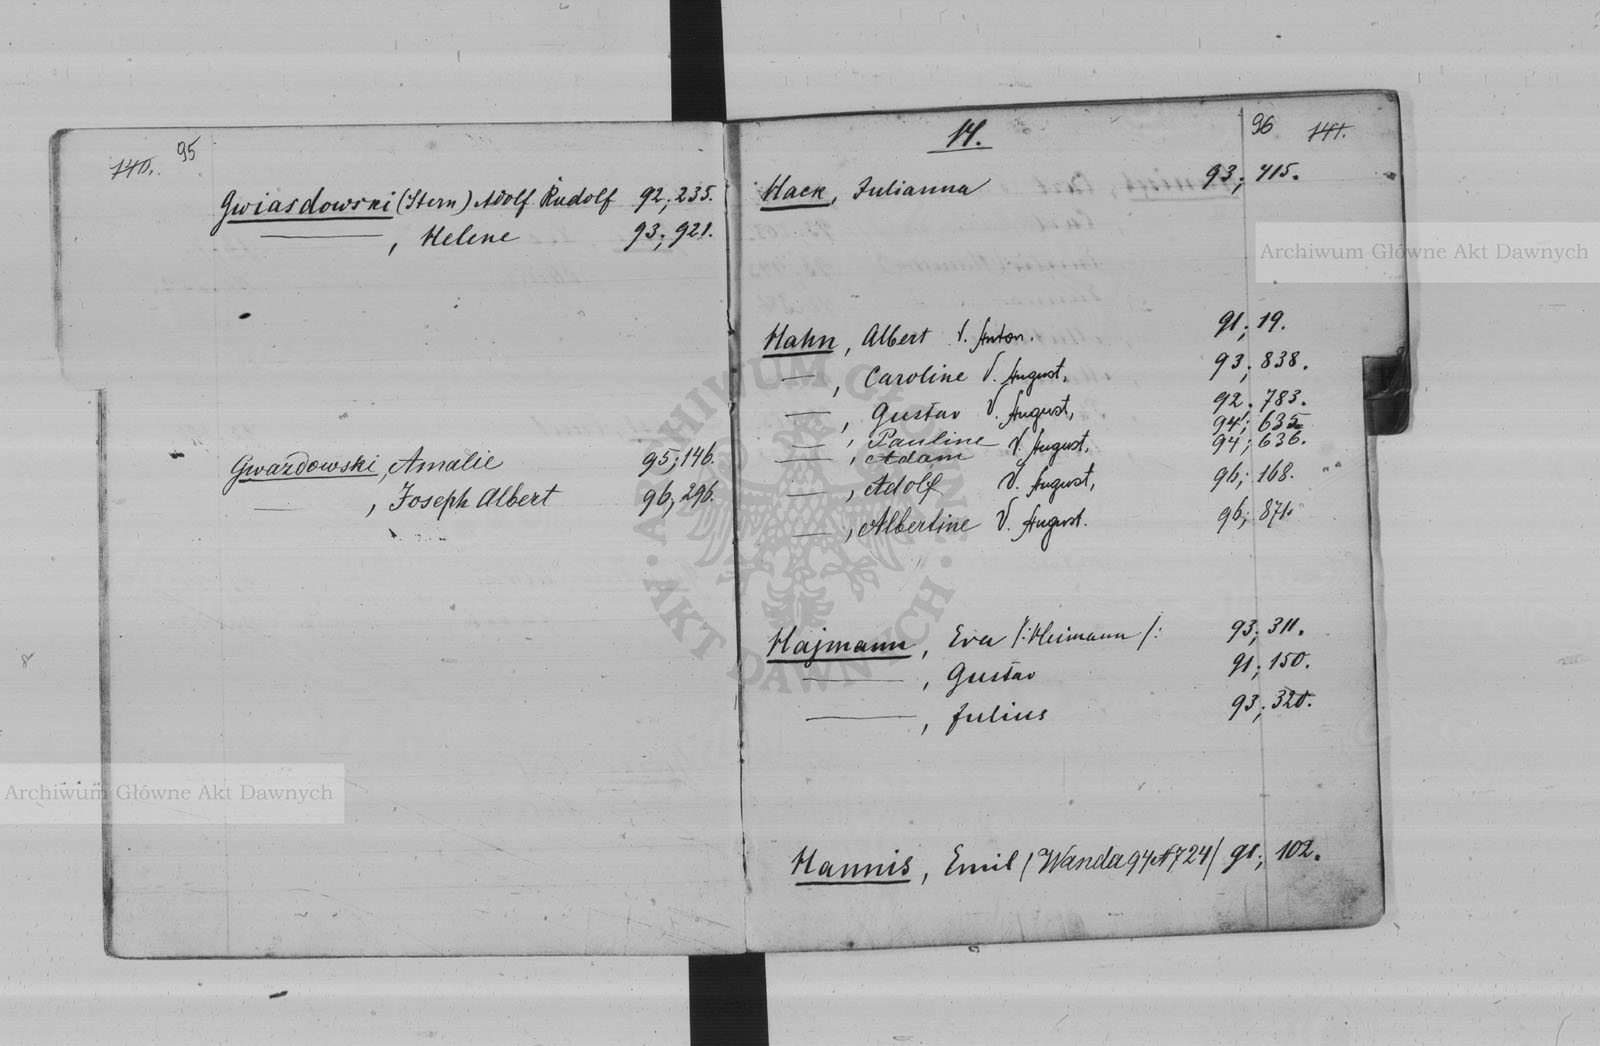 140. 95
Gwiasdowski (Stern) Adolf Rudolf 92; 235.
—, Helene 93; 921.
Gwazdowski, Amalie 95; 146.
—, Joseph Albert 96; 296.
H.
96 141.
Hack, Julianna 93; 415.
Hahn, Albert V. Anton. 91; 19.
—, Caroline V. August, 93; 838.
—, Gustav V. August, 92; 783.
—, Pauline V. August, 94; 635
—, Adam 94; 636.
—, Adolf V. August, 96; 168.
—, Albertine V. August. 96; 871.
Hajmann, Eva /:Heimann/: 93; 311.
—, Gustav 91; 150.
—, Julius 93; 320.
Hannis, Emil (Wanda 94 N 724) 91; 102.
Archiwum Główne Akt Dawnych
Archiwum Główne Akt Dawnych
ARCHIWUM GŁÓWNE · AKT DAWNYCH ·